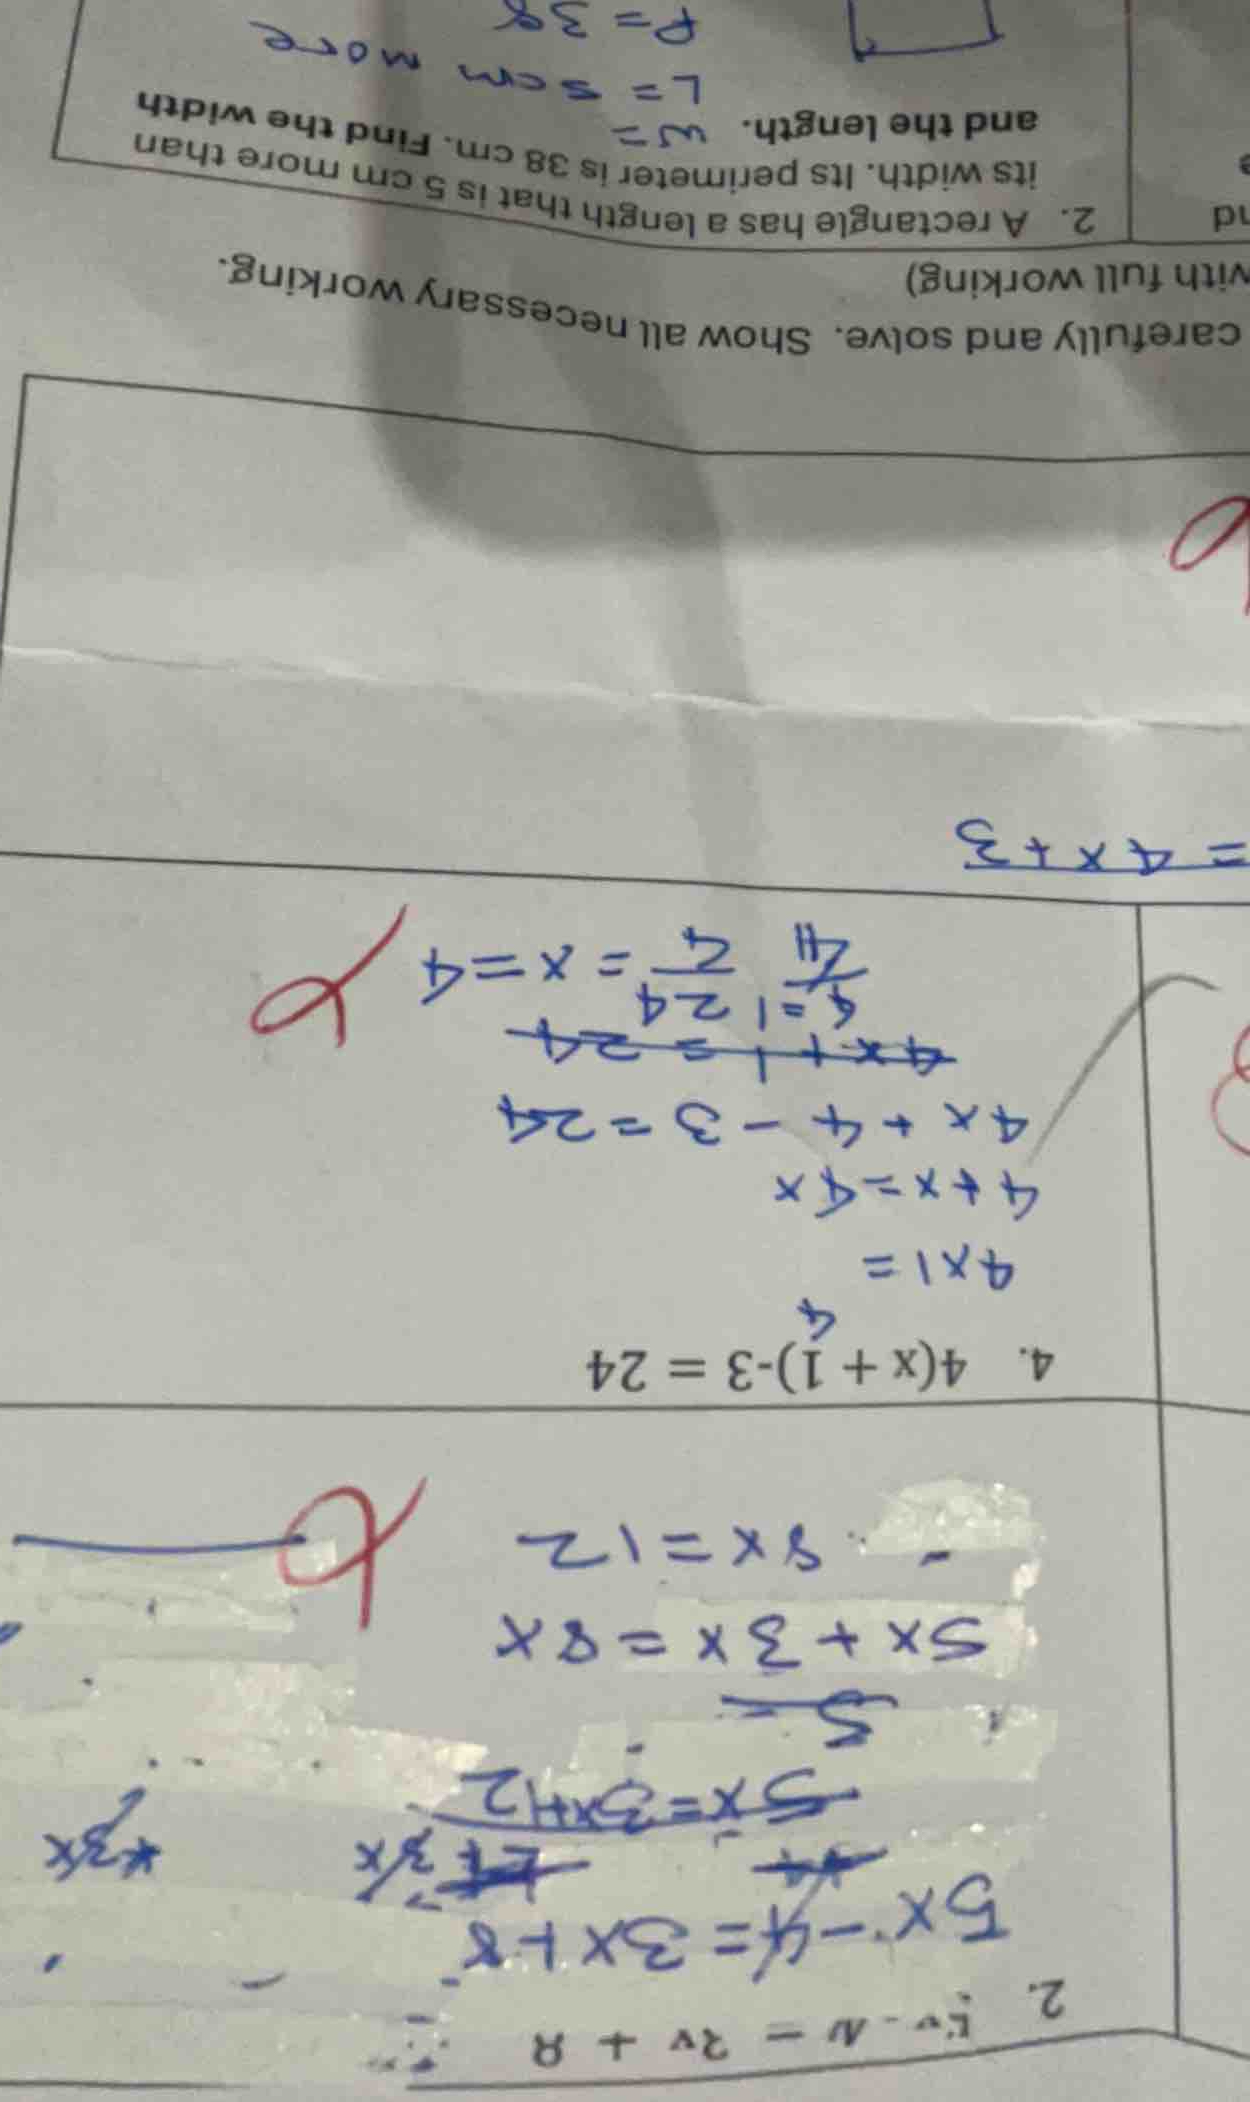 2.
5x - 4 = 3x + 8
3x
3x
5x = 3x+12
5 =
5x + 3x = 8x
8x = 12
4. 4(x + 1)-3 = 24
4
4x1 =
4 + x = 4x
4x + 4 - 3 = 24
4x + 1 = 24
= x = 4
= 4x+3
carefully and solve. Show all necessary working.
with full working)
2. A rectangle has a length that is 5 cm more than
its width. Its perimeter is 38 cm. Find the width
and the length. w=
L = 5 cm more
P = 38